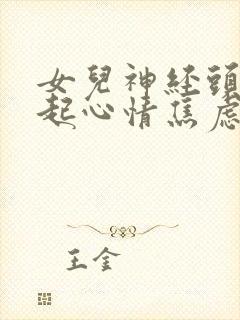 女兒神経頭
起心情焦慮
王金